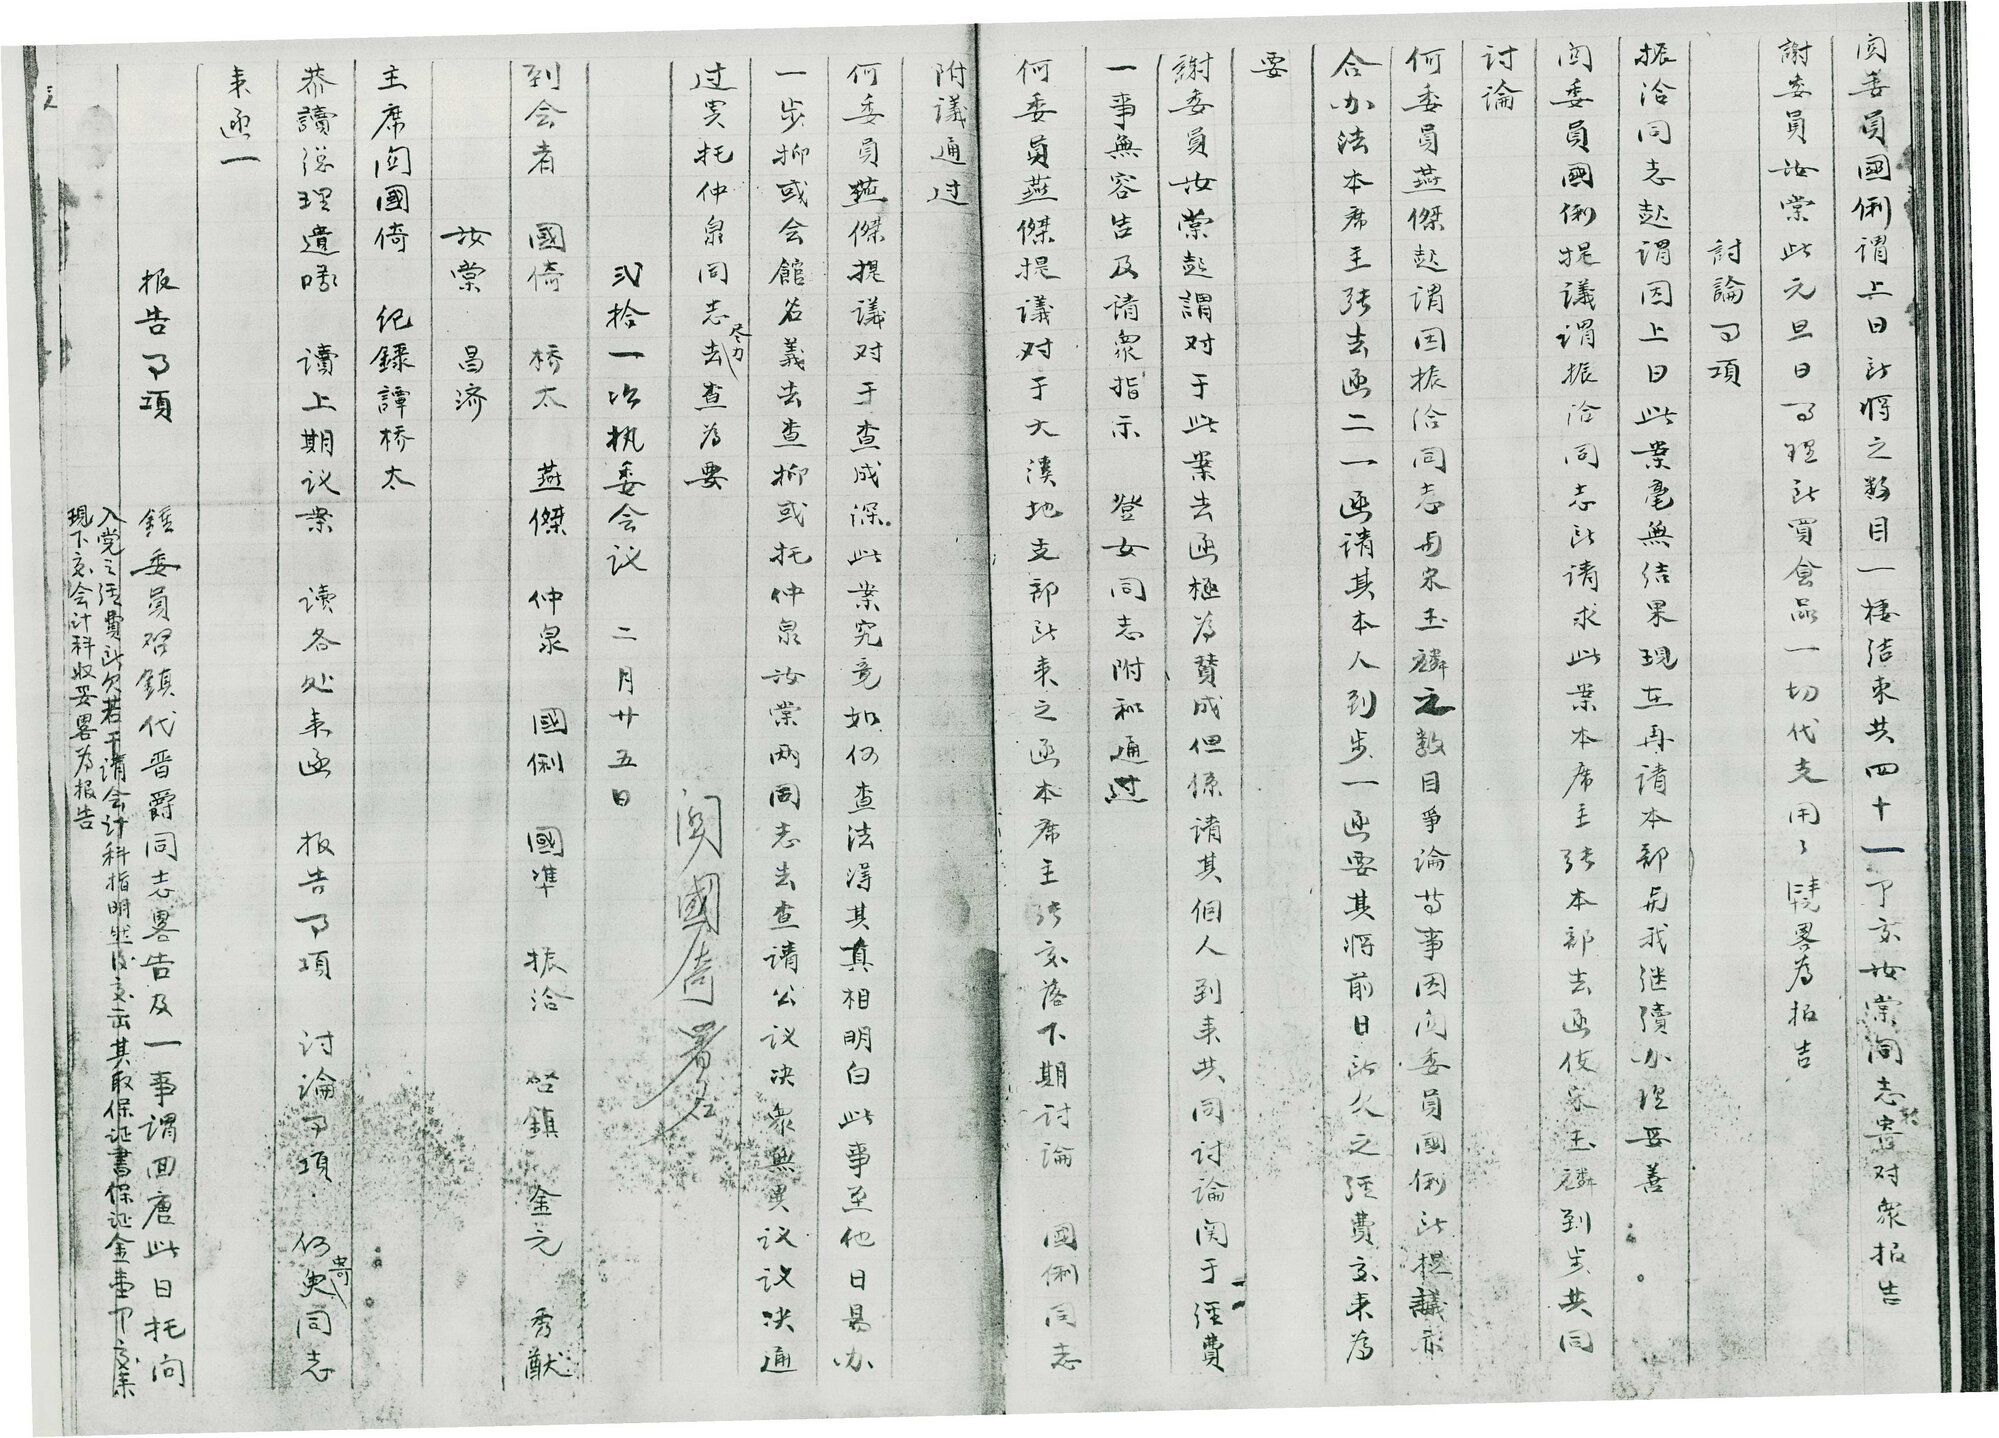 関委員國俐谓上日所將之数目一棲结束共四十一丁交汝棠同志寄对衆报告
謝委員汝棠此元旦日事理所買食品一切代支用了畧為报告
討論事項
振洽同志起谓因上日此案毫無结果现在再请本部与我继續办理妥善
関委員國俐提議谓振洽同志所请求此案本席主张本部去函伎宋玉麟到步共同
讨論
何委員燕傑起谓因振洽同志与宋玉麟之数目爭論等事因関委員國俐所提議亦
合办法本席主张去函二一函请其本人到步一函要其將前日所欠之经費交来為
要
謝委員汝棠起謂对于此案去函極為赞成但係请其個人到来共同讨論関于经費
一事無容告及请衆指示 登女同志附和通过
何委員燕傑提议对于大溪地支部所来之函本席主张交落下期讨論 國俐同志
附议通过
何委員燕傑提议对于查成深此案究竟如何查法淂其真相明白此事至他日易办
一步抑或会館名義去查抑或托仲泉汝棠两同志去查请公议决衆無異议议决通
过異托仲泉同志尽力去查為要
関國倚署名
弍拾一次执委会议 二月廿五日
到会者 國倚 桥太 燕傑 仲泉 國俐 國準 振洽 啓鎮 金元 秀猷
汝棠 昌济
主席関國倚 纪錄譚桥太
恭讀总理遺嘱 读上期议案 读各处来函 报告事項 讨論事項 何寄同志
来函一
报告事項
鍾委員啓鎮代晋爵同志畧告及一事谓回唐此日托向
入党之经費所欠若干请会计科指明然後交去其取保证書保证金壹丁交来
現下交会计科收妥畧為报告